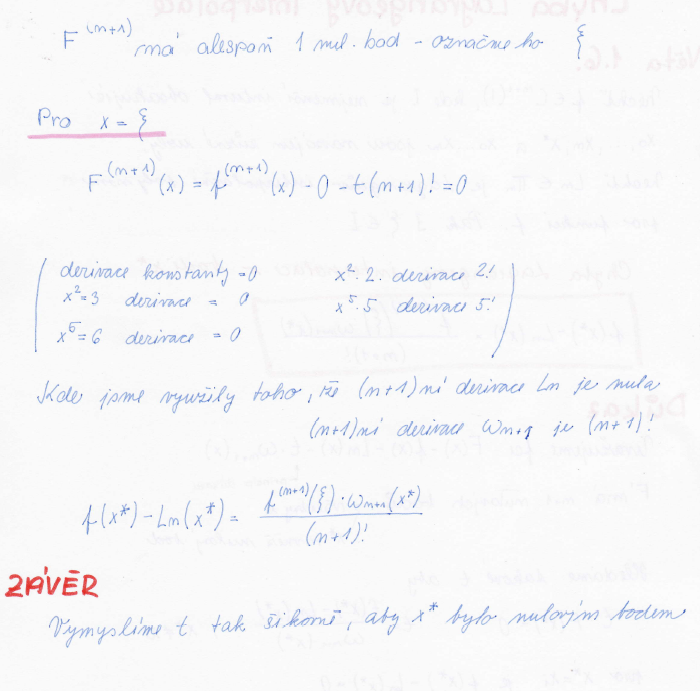 F^(n+1) má alespoň 1 nul. bod - označme ho ξ
Pro x = ξ
F^(n+1)(x) = f^(n+1)(x) - 0 - t(n+1)! = 0
derivace konstanty = 0 x²· 2. derivace 2!
x²=3 derivace = 0 x⁵· 5. derivace 5!
x⁵=6 derivace = 0
Kde jsme využily toho, že (n+1)ní derivace Ln je nula
(n+1)ní derivace ωn+1 je (n+1)!
f(x*) - Ln(x*) = f^(n+1)(ξ)·ωn+1(x*) / (n+1)!
ZÁVĚR
Vymyslíme t tak šikovně, aby x* bylo nulovým bodem